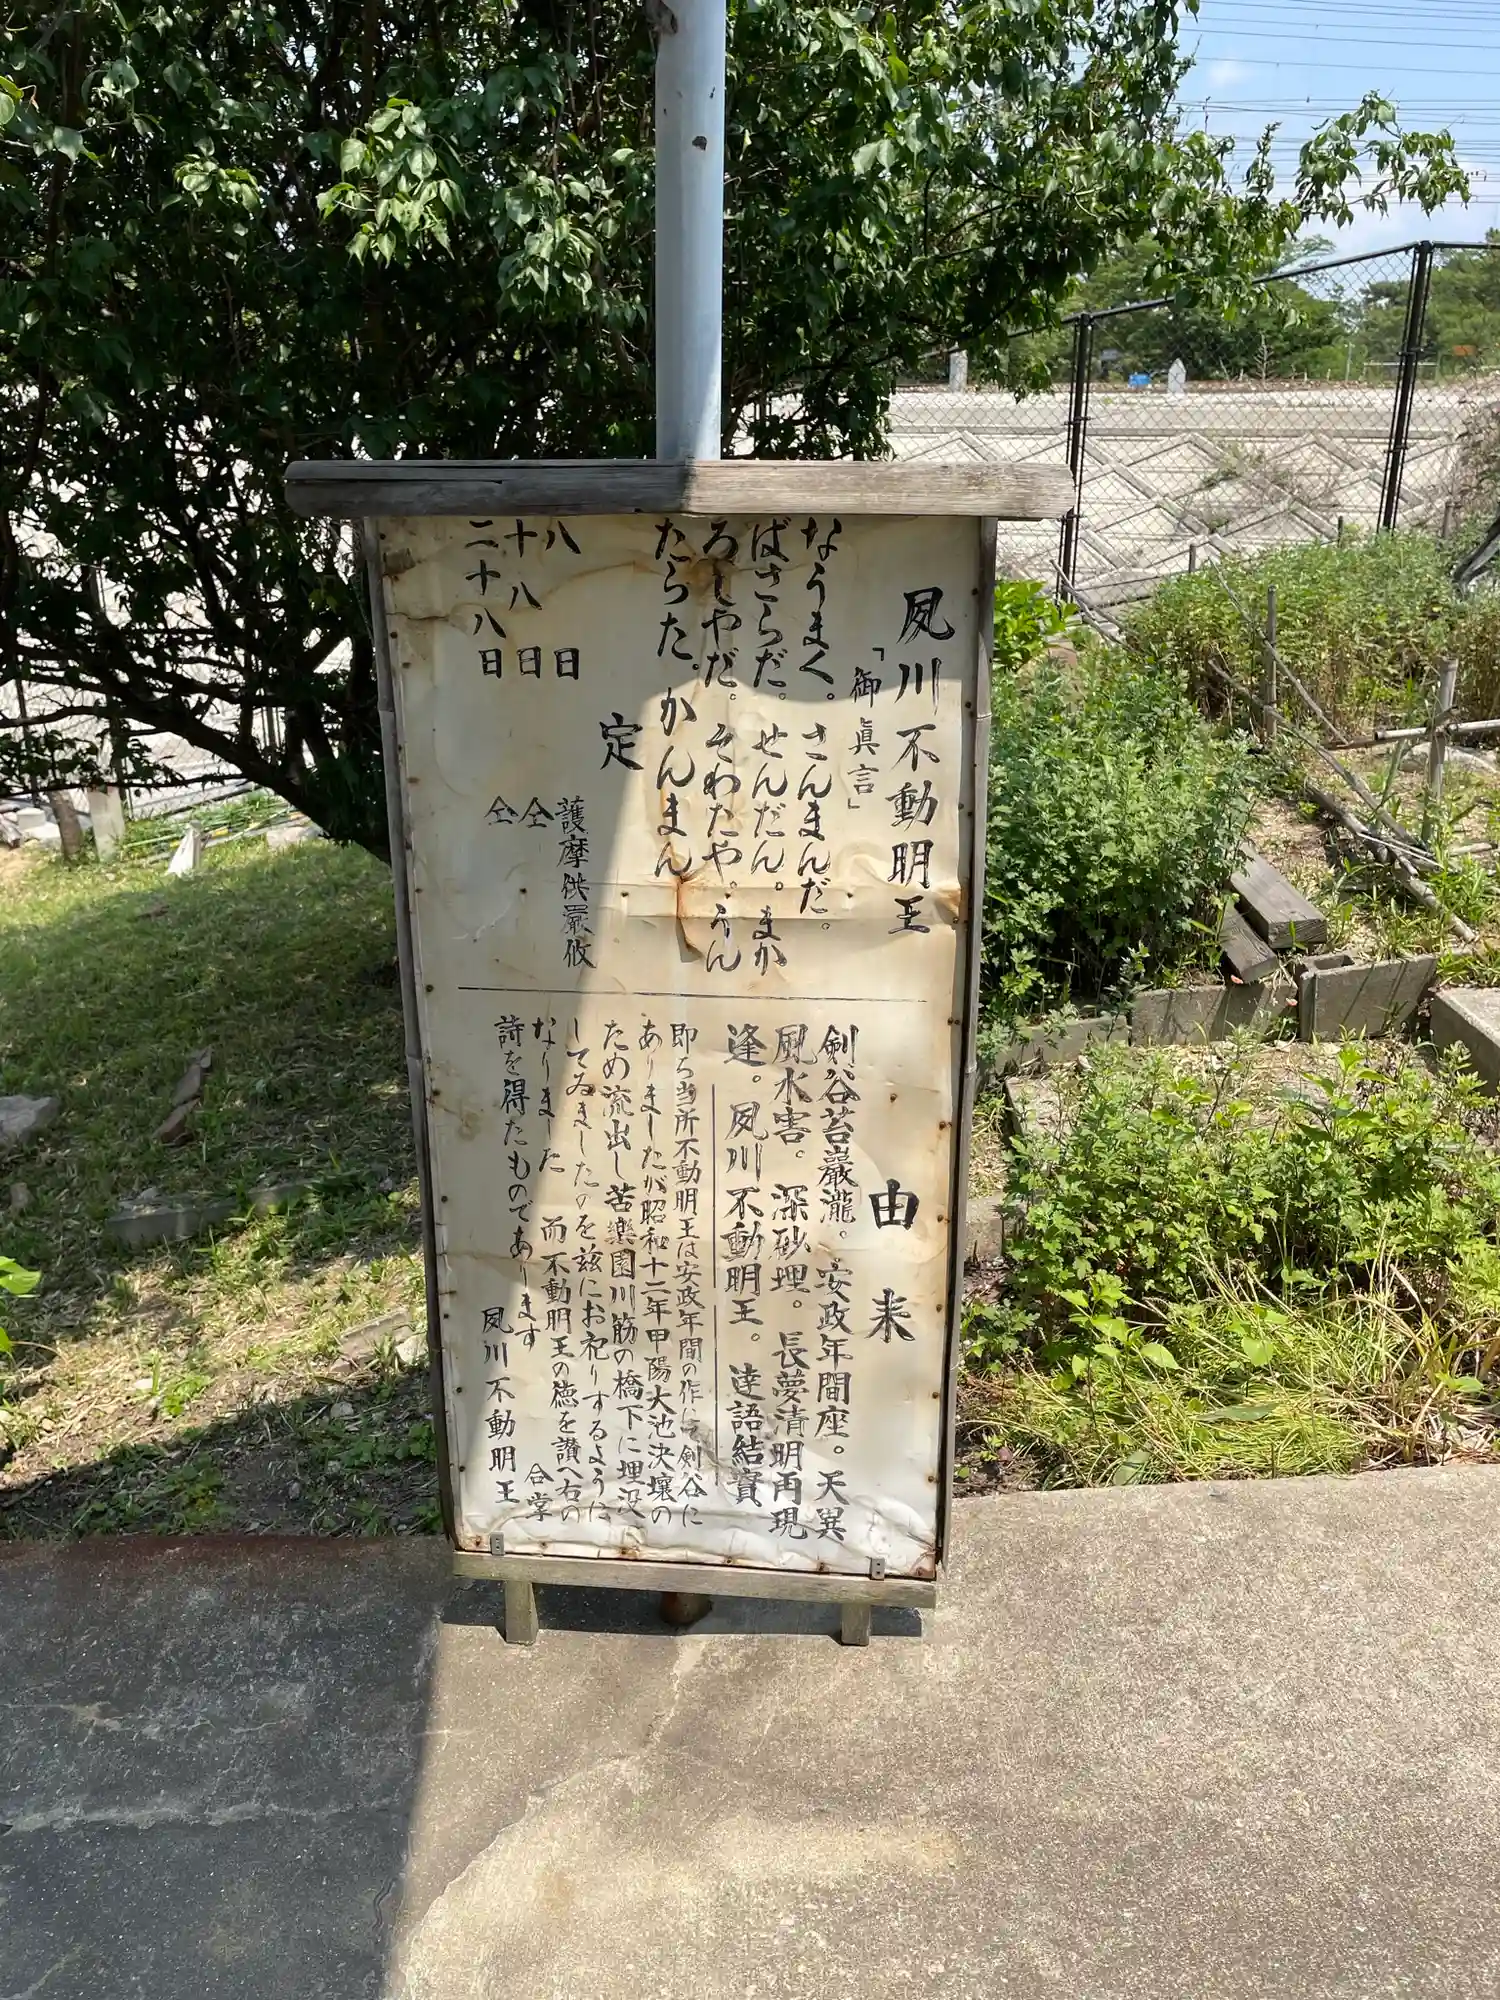 夙川不動明王
「御眞言」
なうまく。さんまんだ。
ばさらだ。せんだん。まか
ろしやだ。そわたや。うん
たらた。かんまん
定
八日 護摩供嚴修
十八日 仝
二十八日 仝
由来
剣谷苔巌瀧。安政年間座。天異
風水害。深砂埋。長夢清明再現
逢。夙川不動明王。達語結實
即ち当所不動明王は安政年間の作にて剣谷に
ありましたが昭和十二年甲陽大池決壊の
ため流出し苦樂園川筋の橋下に埋没
してゐましたのを茲にお祀りするように
なりました 而不動明王の徳を讃へ右の
詩を得たものであります 合掌
夙川不動明王